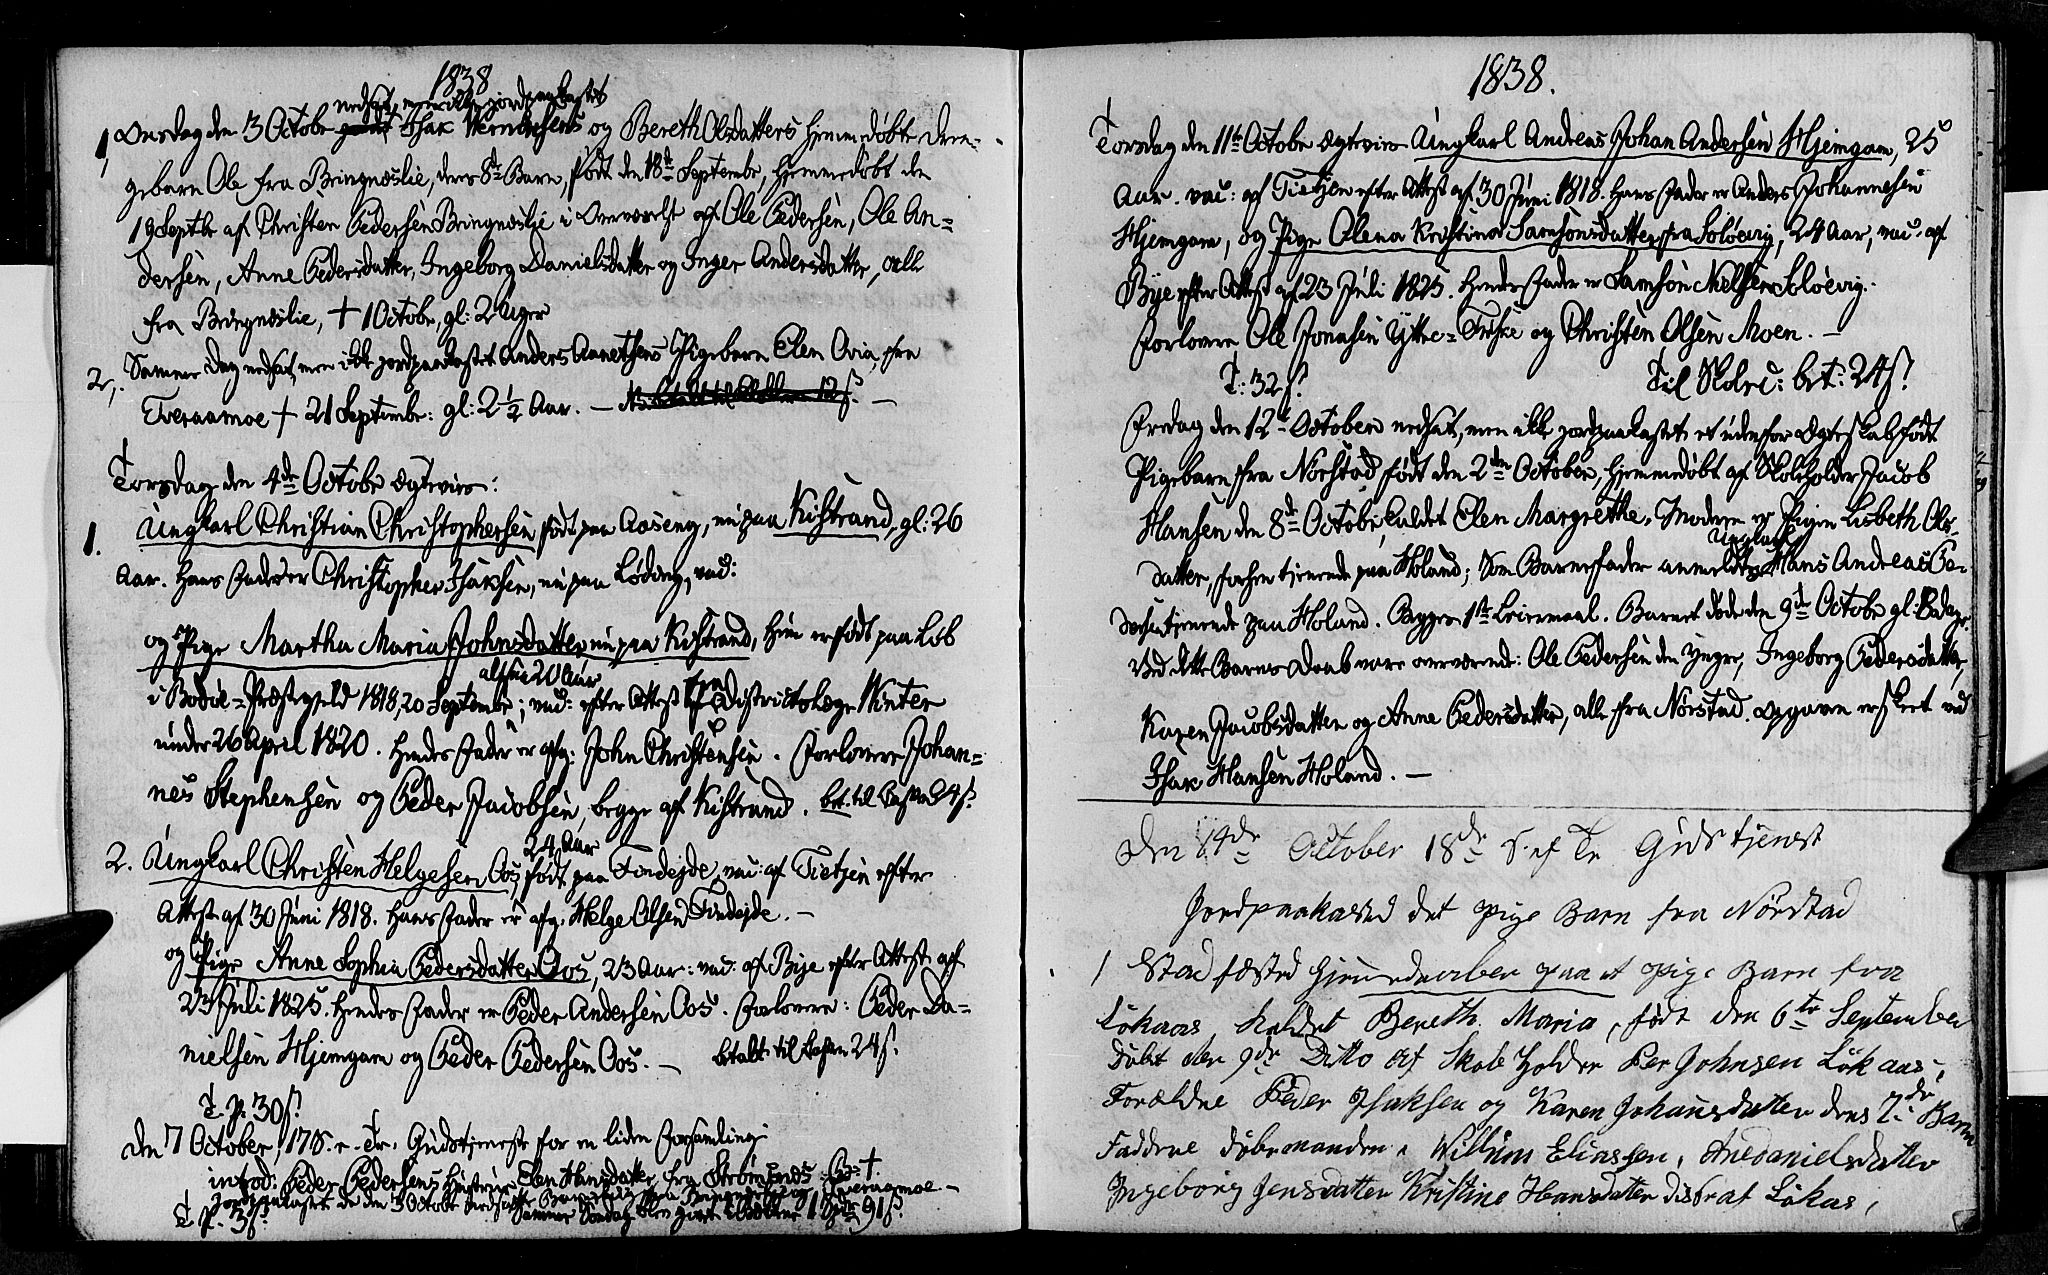 1838
nedsat, men ikke jordpaakastet
1, Onsdag den 3 Octobr Isak Wernersens og Bereth Olsdatters hjemmedøbte Dren-
gebarn Ole fra Bringneslie, deres 8de Barn, født den 18de Septembr, hjemmedøbt den
19 Septbr af Christen Pedersen Bringneslie i Overværelse af Ole Pedersen, Ole An-
dersen, Anne Pedersdatter, Ingeborg Danielsdatter og Inger Andersdatter, alle
fra Bringneslie, + 1 Octobr, gl: 2 Uger
2, Samme Dag nedsat, men ikke jordpaakastet Anders Anethsens Pigebarn Elen Ovia, fra
Tveraamoe + 21 Septembr: gl: 2 1/2 Aar. —
Torsdag den 4de Octobr Ægtevies:
1. Ungkarl Christian Christophersen født paa Aaseng, nu paa Kistrand, gl: 26
Aar. Hans Fader er Christopher Isaksen, nu paa Løding, vac:
og Pige Martha Maria Johnsdatter nu paa Kistrand, hun er født paa Løb
altsaa 20 Aar
i Bodøe-Præstegjeld 1818, 20 Septembr; vac: efter Attest fra Districtslæge Winter
under 26 April 1820. Hendes Fader er afg: John Christensen. Forlovere Johan-
nes Stephensen og Peder Jacobsen, begge af Kistrand. bet. til 24 s.
24 Aar
2. Ungkarl Christen Helgesen Oos, født paa Findejde, vac: af Tietzen efter
Attest af 30 Juni 1818. Hans Fader er afg. Helge Olsen Findejde. —
og Pige Anne Sophia Pedersdatter Oos, 23 Aar: vac: af Bije efter Attest af
23 Juli 1825. Hendes Fader er Peder Andersen Oos. Forlovere: Peder Da-
nielsen Hjemgam og Peder Pedersen Oos. — betalt til 24 s.
T. P. 30 s.
Den 7 October, 17 S. e. Tr. Gudstjeneste for en liden Forsamling
introd: Peder Pedersens Hustrue Elen Hansdatter fra Strømsnes
Jordpaakastet de den 3 Octobr nedsatte Tveraamoe —
T. P. 3 s. Samme Søndag 91 s.
1838.
Torsdag den 11te Octobr Ægtevies Ungkarl Andreas Johan Andersen Hjemgam, 25
Aar. vac: af Tietzen efter Attest af 30 Juni 1818. Hans Fader er Anders Johannesen
Hjemgam, og Pige Olena Kristina Samsonsdatter fra Soløevig, 24 Aar, vac. af
Bije efter Attest af 23 Juli 1825. Hendes Fader er Samson Nielsen Soløevig.
Forlovere Ole Jonasen Yttre-Friske og Christen Olsen Moen. —
T: 32 s. Til Skolec: bet: 24 s.
Fredag den 12te October nedsat, men ikke jordpaakastet et udenfor Ægteskab født
Pigebarn fra Nørstad født den 2den October, hjemmedøbt af Skoleholder Jacob
Hansen den 8de Octobr, kaldet Elen Margrethe. Moderen er Pigen Lisbeth Ols-
Ungkarl
datter, forhen tjenende paa Holand; Som Barnefader anmeldtes Hans Andreas Pe-
dersen tjenende paa Holand. Begges 1ste Leiermaal. Barnet døde den 9de Octobr gl: 8 dage.
Ved dette Barns Daab vare overværende: Ole Pedersen den yngre, Ingeborg Pedersdatter,
Karen Jacobsdatter og Anne Pedersdatter, alle fra Nørstad. Opgaven er skeet ved
Isak Hansen Holand. —
Den 14de October 18de S. ef Tr Gudstjenest
Jordpaakasted det pige Barn fra Nørstad
1 Stadfæsted Hjemedaaben paa et pige Barn fra
Lökaas, Kaldet Bereth Maria, født den 6te September
Döbt den 9de Ditto af Skole Holder Per Johnsen Lökaas,
Forældre Peder Isaksen og Karen Johansdatter deres 2de Barn
Faddere Döbemanden, Willum Eliassen, Anedanielsdatter
Ingeborg Jensdatter Kristine Hansdatter disse af Lökas,